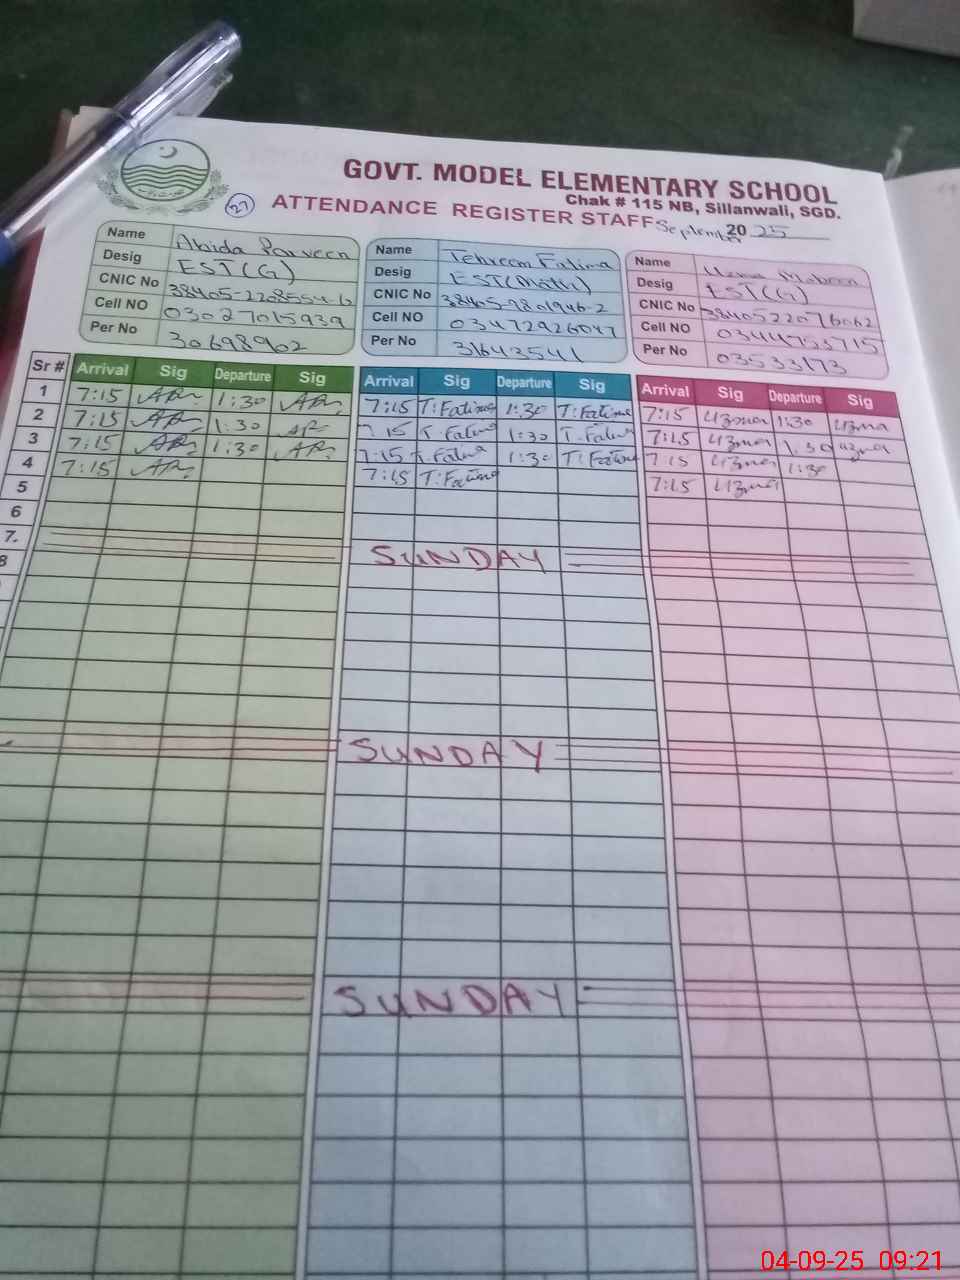 GOVT. MODEL ELEMENTARY SCHOOL
Chak # 115 NB, Sillanwali, SGD.
27 ATTENDANCE REGISTER STAFF September 2025
Name Abida Parveen
Desig EST(G)
CNIC No
Cell NO 03027015939
Per No 30698902
Name Tehreem Fatima
Desig EST(Math)
CNIC No
Cell NO
Per No 31643541
Name
Desig EST(G)
CNIC No
Cell NO
Per No 03533173
Sr # Arrival Sig Departure Sig Arrival Sig Departure Sig Arrival Sig Departure Sig
1 7:15 1:30 7:15 T:Fatima 1:30 T:Fatima 7:15 Uzma 1:30 Uzma
2 7:15 1:30 15 T.Fatima 1:30 T.Fatima 7:15 Uzma 1:30 Uzma
3 7:15 1:30 7:15 T.Fatima 1:30 T:Fatima 7:15 Uzma 1:30
4 7:15 7:15 T:Fatima 7:15 Uzma
5
6
7.
8 SUNDAY
SUNDAY
SUNDAY
04-09-25 09:21